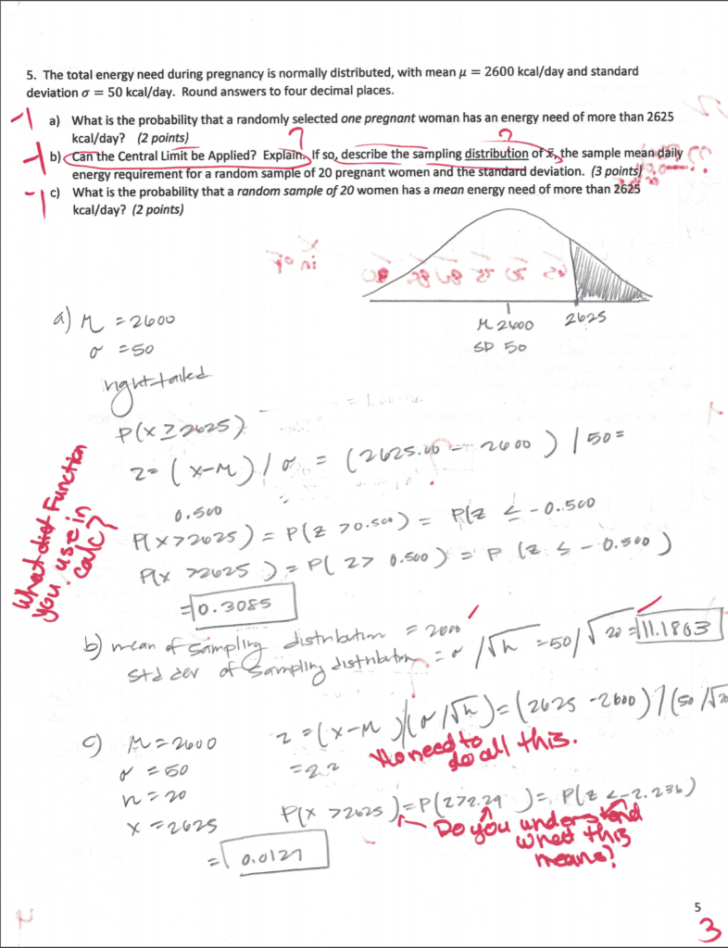 5. The total energy need during pregnancy is normally distributed, with mean μ = 2600 kcal/day and standard
deviation σ = 50 kcal/day. Round answers to four decimal places.
-1 a) What is the probability that a randomly selected one pregnant woman has an energy need of more than 2625
kcal/day? (2 points) ? ?
-1 b) Can the Central Limit be Applied? Explain. If so, describe the sampling distribution of x̄, the sample mean daily
energy requirement for a random sample of 20 pregnant women and the standard deviation. (3 points)
-1 c) What is the probability that a random sample of 20 women has a mean energy need of more than 2625
kcal/day? (2 points)
μ 2600 2625
SD 50
a) μ = 2600
σ = 50
right-tailed
P(x ≥ 2625)
z = (x-μ)/σ = (2625.00 - 2600) / 50 =
0.500
P(x > 2625) = P(z > 0.500) = P(z ≤ -0.500
P(x > 2625) = P(z > 0.500) = P(z ≤ -0.500)
= 0.3085
What dist Function
you use in
calc?
b) mean of sampling distribution = 2600
std dev of sampling distribution = σ/√n = 50/√20 = 11.1803
c) μ = 2600 z = (x-μ)/(σ/√n) = (2625 - 2600)/(50/√20
σ = 50 = 2.2
No need to
do all this.
n = 20
x = 2625
P(x > 2625) = P(z > 2.24) = P(z < -2.236)
Do you understand
what this
means?
= 0.0127
5
3